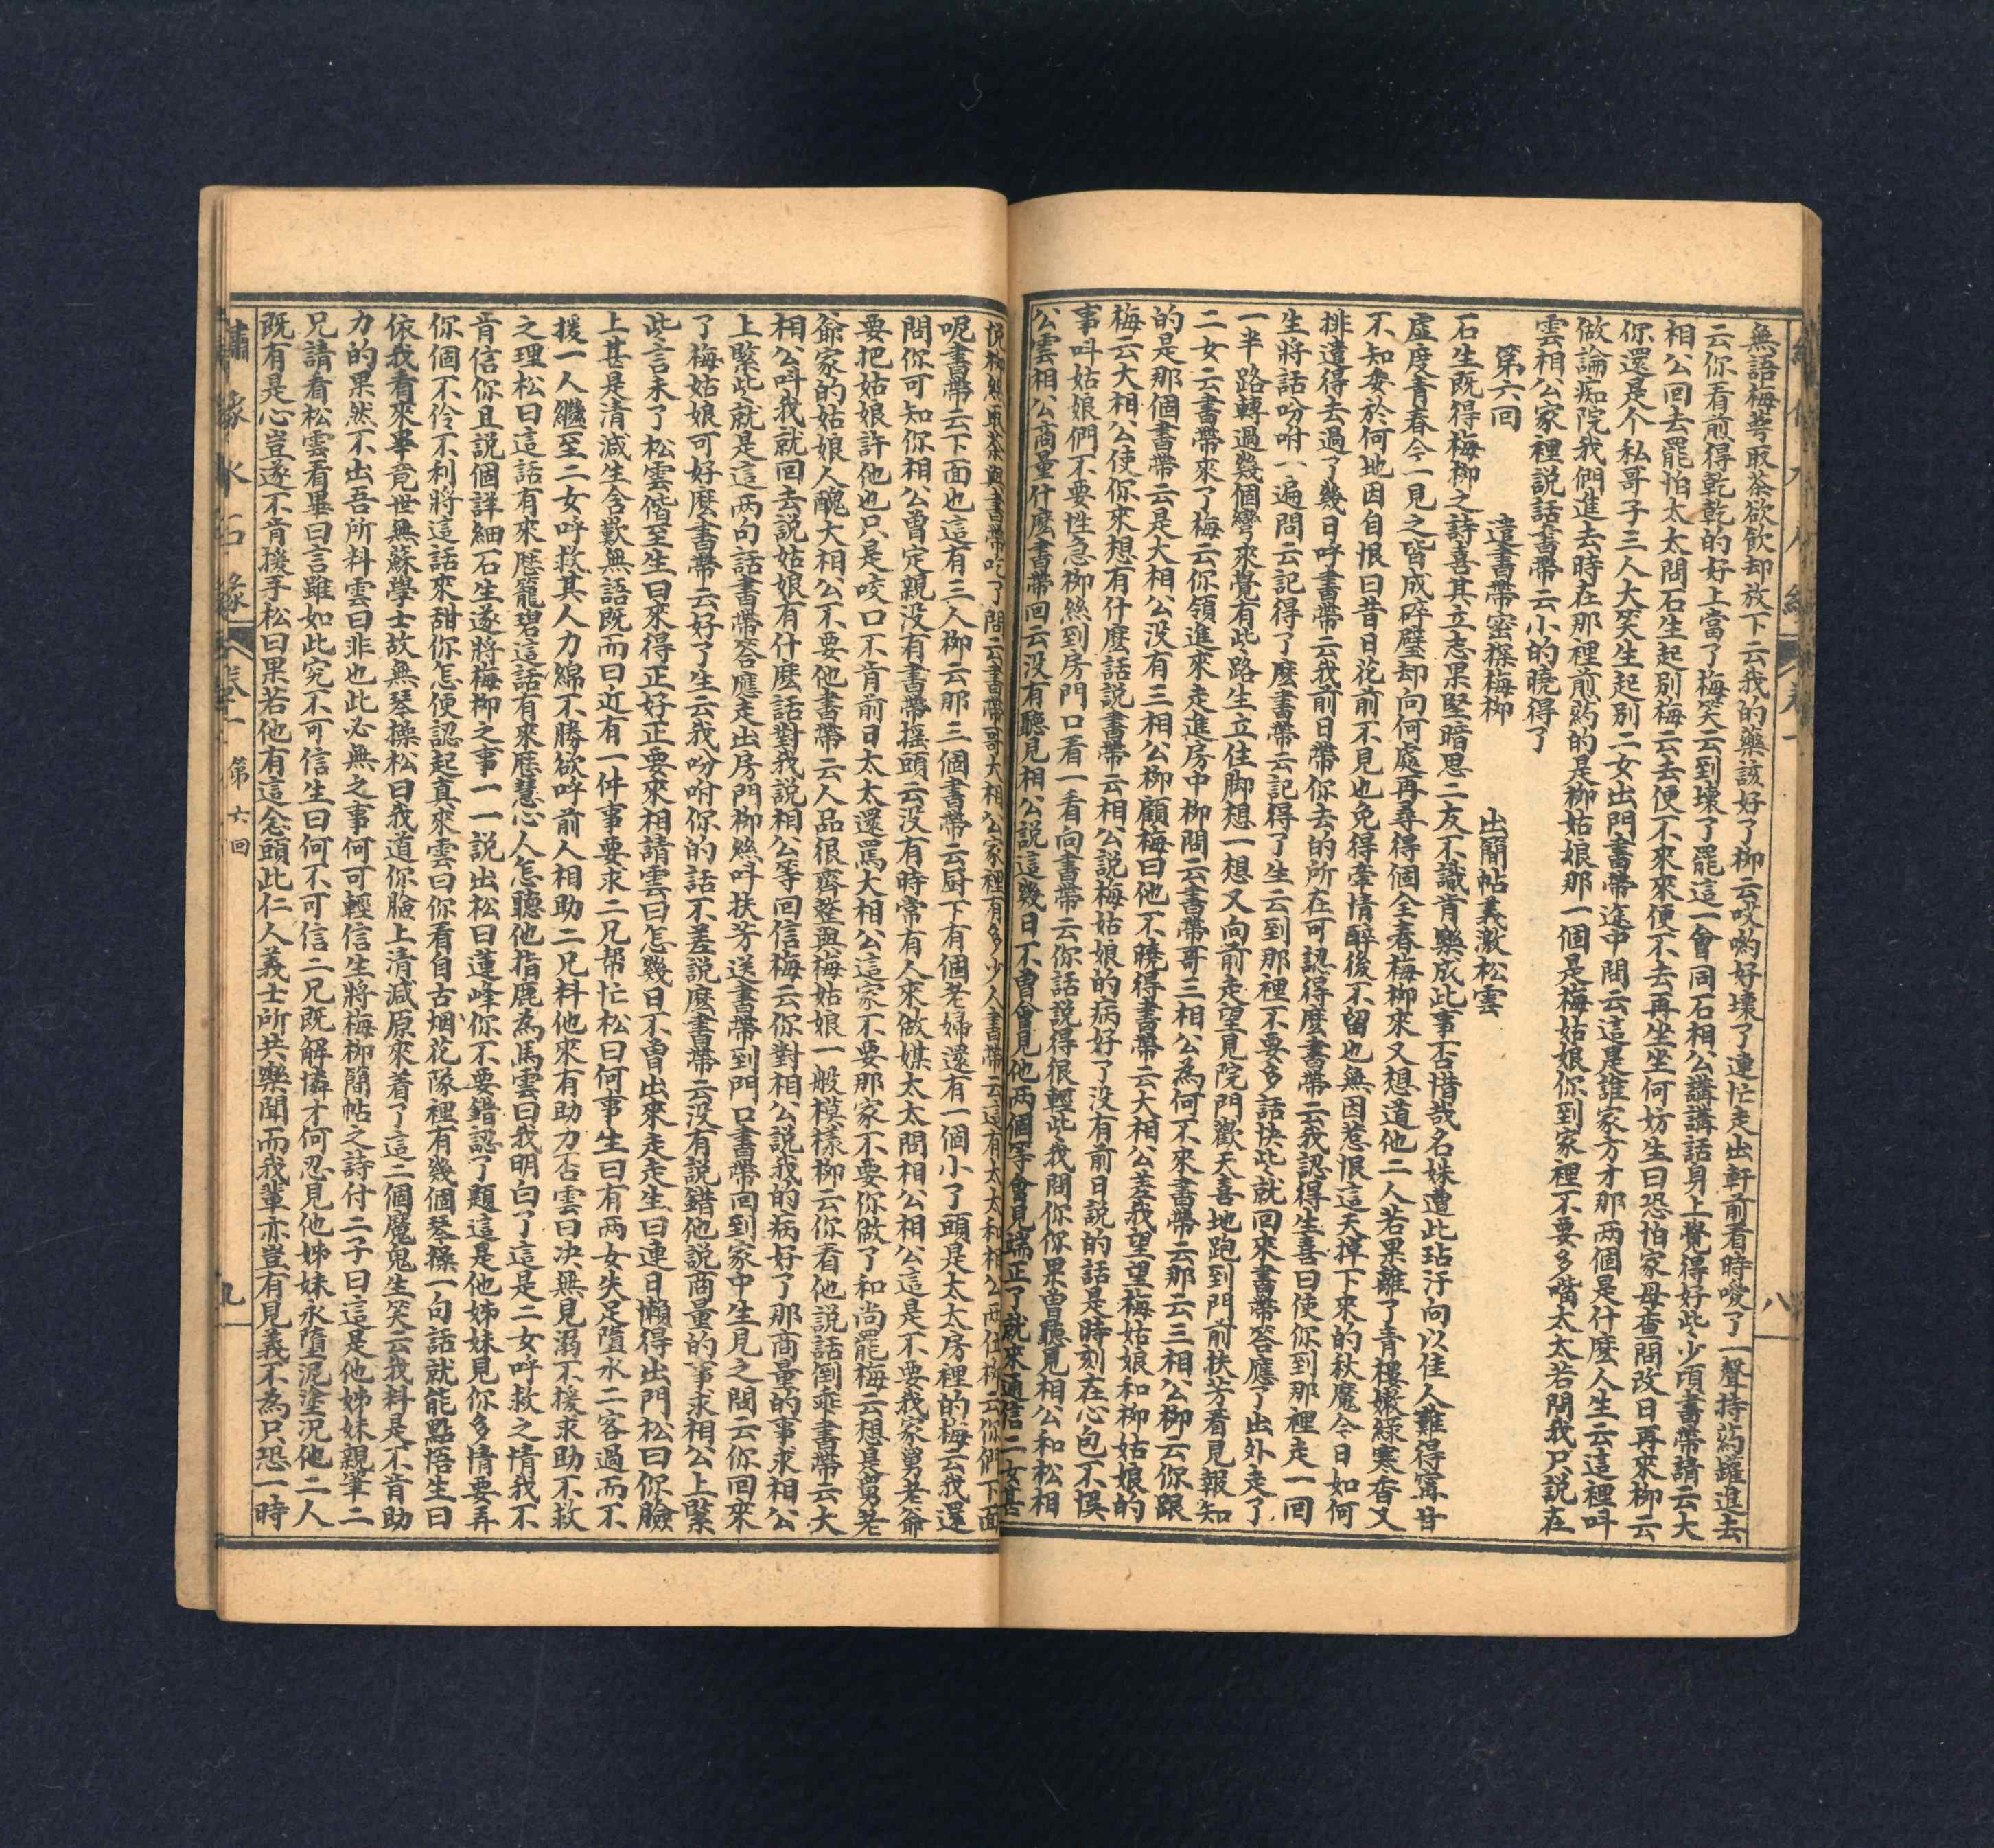 無語梅萼取茶欲飲却放下云我的藥該好了柳云哎喲好壞了連忙走出軒前看時噯了一聲持藥罐進去
云你看煎得乾乾的好上當了梅笑云到壞了罷這一會同石相公講講話身上覺得好些少頃書帶請云大
相公回去罷怕太太問石生起別梅云去便不來來便不去再坐坐何妨生曰恐怕家母查問改日再來柳云
你還是个私哥子三人大笑生起別二女出門書帶途中問云這是誰家方才那两個是什麽人生云這裡呌
做論痴院我們進去時在那裡煎药的是柳姑娘那一個是梅姑娘你到家裡不要多嘴太太若問我只説在
雲相公家裡説話書帶云小的曉得了
第六回　遣書帶密探梅柳　出簡帖義激松雲
石生既得梅柳之詩喜其立志果堅暗思二友不識肯樂成此事否惜哉名姝遭此玷汙向以佳人難得寗甘
虛度青春今一見之皆成碎璧却向何處再尋得個全春梅柳來又想道他二人若果離了青樓嫩綠寒香又
不知委於何地因自恨曰昔日花前不見也免得牽情醉後不留也無因惹恨這天掉下來的秋魔令日如何
排遣得去過了幾日呼書帶云我前日帶你去的所在可認得麽書帶云我認得生喜曰使你到那裡走一回
生將話吩咐一遍問云記得了麽書帶云記得了生云到那裡不要多話快些就回來書帶答應了出外走了
一半路轉過幾個彎來覺有些路生立住脚想一想又向前走望見院門歡天喜地跑到門前扶芳看見報知
二女云書帶來了梅云你領進來走進房中柳問云書帶哥三相公為何不來書帶云那云三相公柳云你跟
的是那個書帶云是大相公没有三相公柳顧梅曰他不曉得書帶云大相公差我望望梅姑娘和柳姑娘的
梅云大相公使你來想有什麽話説書帶云相公説梅姑娘的病好了没有前日説的話是時刻在心包不悞
事呌姑娘們不要性急柳絲到房門口看一看向書帶云你話説得很輕些我問你你果曾聽見相公和松相
公雲相公商量什麽書帶回云没有聽見相公説這幾日不曾會見他两個等會見端正了就來通信二女甚
悅柳絲取茶與書帶吃了問云書帶哥大相公家裡有多少人書帶云這有太太和相公两位柳云你們下面
呢書帶云下面也這有三人柳云那三個書帶云厨下有個老婦還有一個小了頭是太太房裡的梅云我還
問你可知你相公曾定親没有書帶摇頭云没有時常有人來做媒太太問相公相公這是不要我家舅老爺
要把姑娘許他也只是咬口不肯前日太太還罵大相公這家不要那家不要你做了和尚罷梅云想是舅老
爺家的姑娘人醜大相公不要他書帶云人品很齊整與梅姑娘一般模樣柳云你看他説話倒乖書帶云大
相公呌我就回去説姑娘有什麽話對我説相公等回信梅云你對相公説我的病好了那商量的事求相公
上緊些就是這两句話書帶答應走出房門柳絲呌扶芳送書帶到門口書帶回到家中生見之問云你回來
了梅姑娘可好麽書帶云好了生云我吩咐你的話不差説麽書帶云没有説錯他説商量的事求相公上緊
些言未了松雲偕至生曰來得正好正要來相請雲曰怎幾日不曾出來走走生曰連日懶得出門松曰你臉
上甚是清減生含歎無語既而曰近有一件事要求二兄帮忙松曰何事生曰有两女失足墮水二客過而不
援一人繼至二女呼救其人力綿不勝欲呼前人相助二兄料他來有助力否雲曰决無見溺不援求助不救
之理松曰這話有來歷籠碧這話有來歷慧心人怎聽他指鹿為馬雲曰我明白了這是二女呼救之情我不
肯信你且説個詳細石生遂將梅柳之事一一説出松曰蓮峰你不要錯認了題這是他姊妹見你多情要弄
你個不伶不利將這話來甜你怎便認起真來雲曰你看自古烟花隊裡有幾個琴操一句話就能點悟生曰
依我看來畢竟世無蘇學士故無琴操松曰我道你臉上清減原來着了這二個魔鬼生笑云我料是不肯助
力的果然不出吾所料雲曰非也此必無之事何可輕信生將梅柳簡帖之詩付二子曰這是他姊妹親筆二
兄請看松雲看畢曰言雖如此究不可信生曰何不可信二兄既解憐才何忍見他姊妹永墮泥塗况他二人
既有是心豈遂不肯援手松曰果若他有這念頭此仁人義士所共樂聞而我輩亦豈有見義不為只恐一時
繡像水石緣　卷一　第六回　九
八